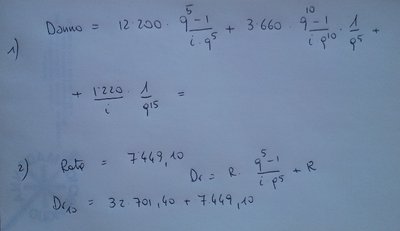 1) Danno = 12.200 · q⁵-1 / i·q⁵ + 3.660 · q¹⁰-1 / i q¹⁰ · 1 / q⁵ +
+ 1.220 / i · 1 / q¹⁵ =
2) Rata = 7449,10
Dr = R · q⁵-1 / i q⁵ + R
Dr₁₀ = 32.701,40 + 7449,10